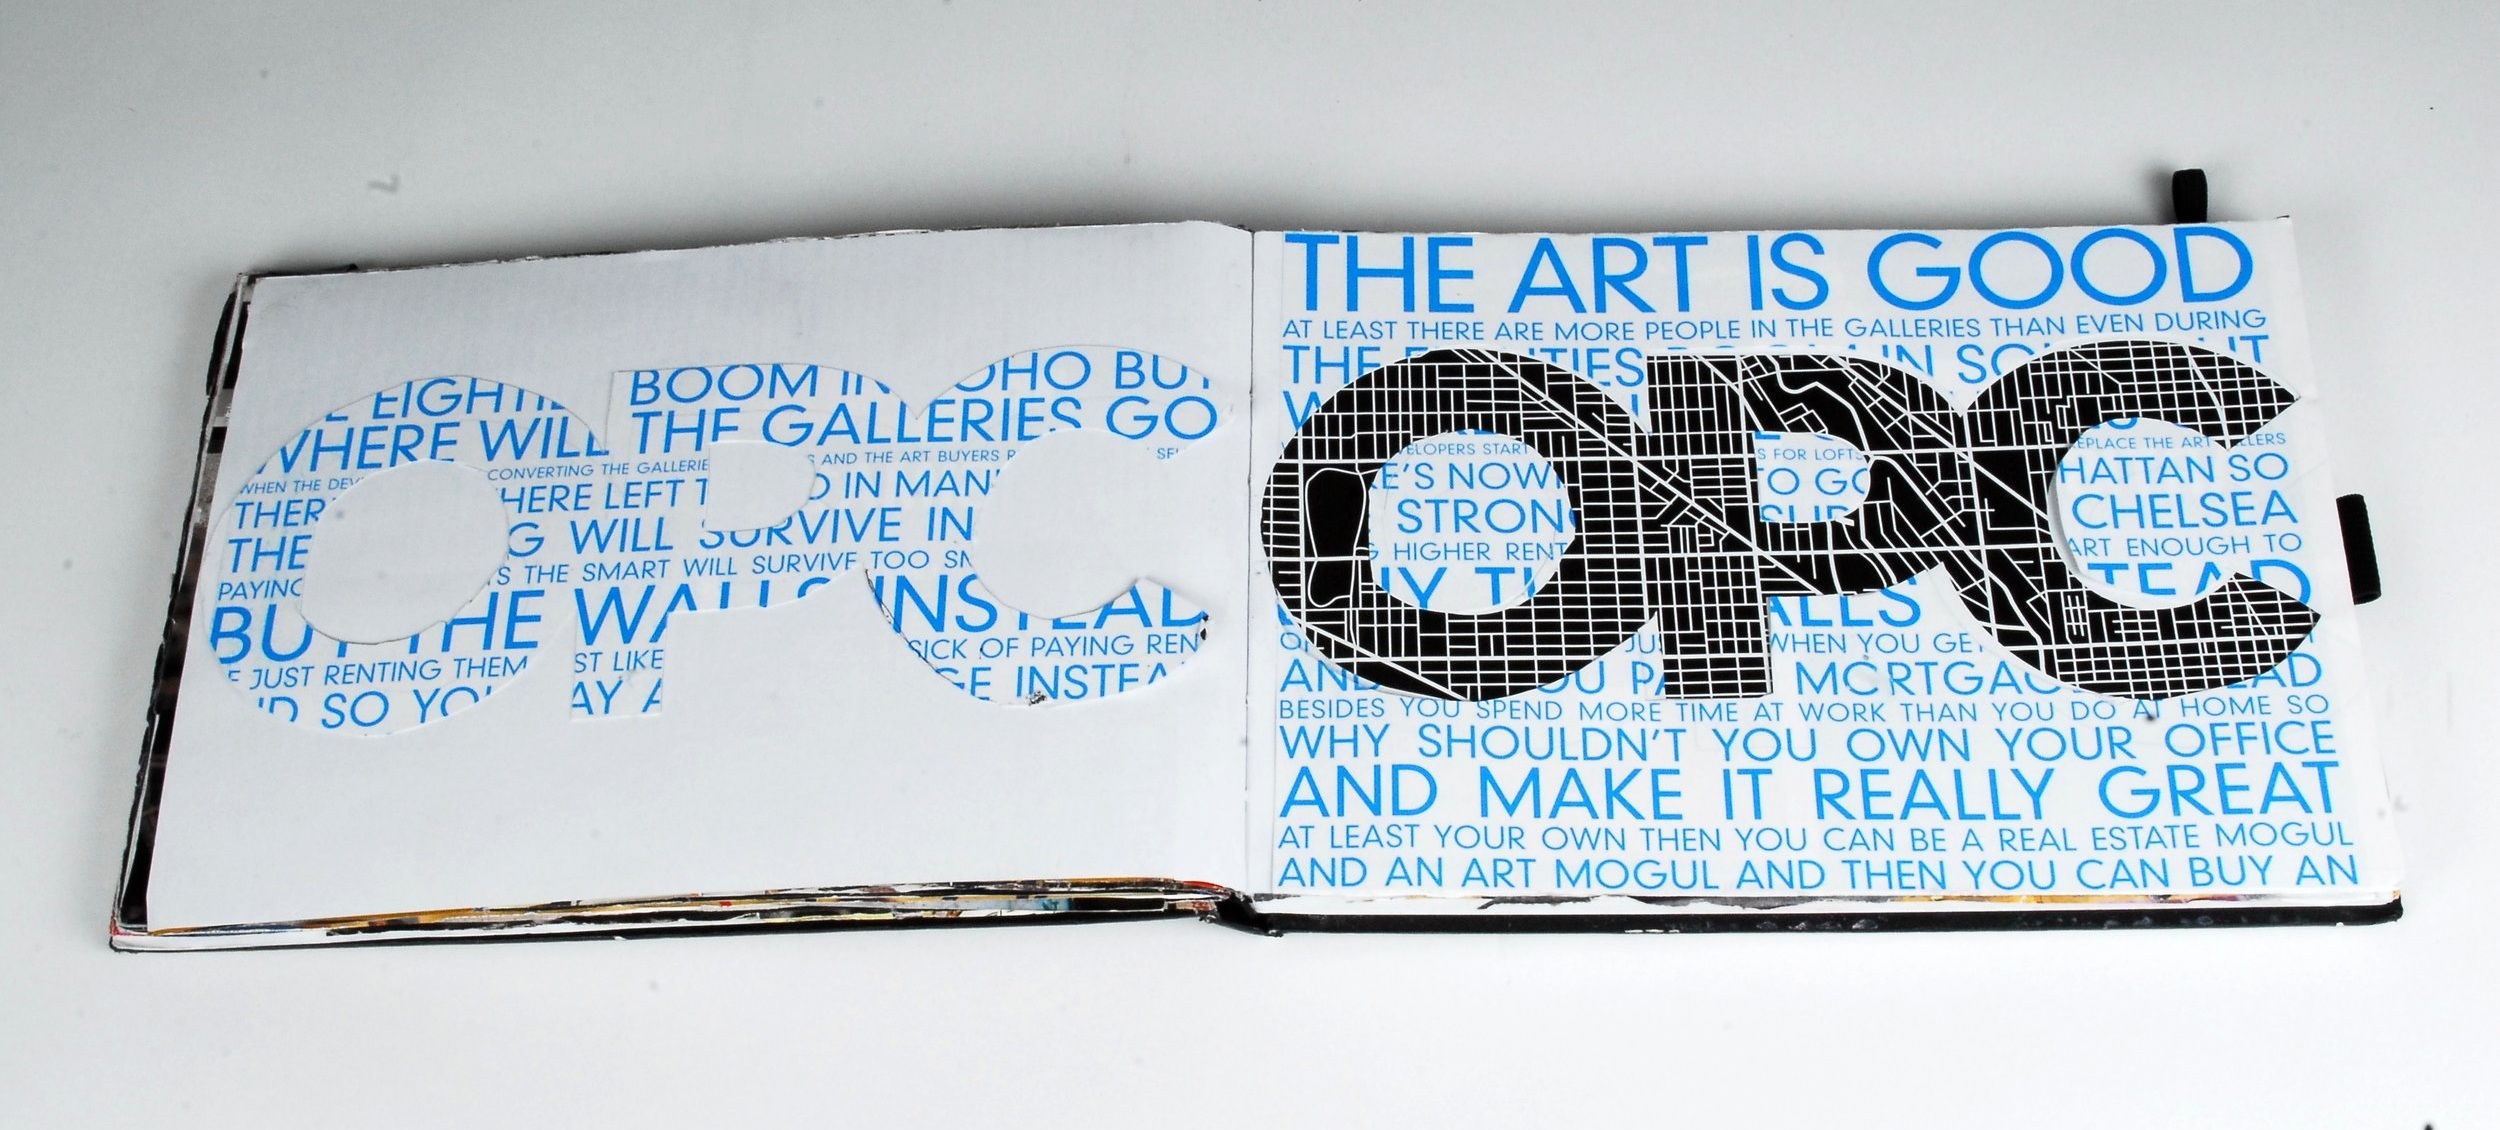 OPC
EIGHTIE BOOM IN OHO BUT
WHERE WILL THE GALLERIES GO
WHEN THE DEV CONVERTING THE GALLERIE AND THE ART BUYERS R SEL
THER HERE LEFT T O IN MAN
THE G WILL SURVIVE IN
PAYING S THE SMART WILL SURVIVE TOO SM
BUY THE WALLS INSTEAD
E JUST RENTING THEM ST LIKE SICK OF PAYING REN
ND SO YOU AY A GE INSTEA
THE ART IS GOOD
AT LEAST THERE ARE MORE PEOPLE IN THE GALLERIES THAN EVEN DURING
THE E TIES IN SO UT
OPC
VELOPERS START S FOR LOFTS REPLACE THE ART LLERS
RE'S NOWH TO GO HATTAN SO
STRONG SUR CHELSEA
G HIGHER RENT ART ENOUGH TO
UY TH ALLS TEAD
JUS WHEN YOU GET
AND OU PA MORTGAG EAD
BESIDES YOU SPEND MORE TIME AT WORK THAN YOU DO AT HOME SO
WHY SHOULDN'T YOU OWN YOUR OFFICE
AND MAKE IT REALLY GREAT
AT LEAST YOUR OWN THEN YOU CAN BE A REAL ESTATE MOGUL
AND AN ART MOGUL AND THEN YOU CAN BUY AN